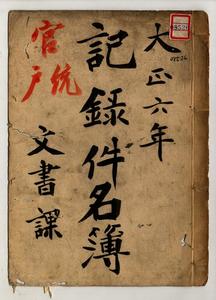 大正六年
記錄件名簿
官統
戸
文書課